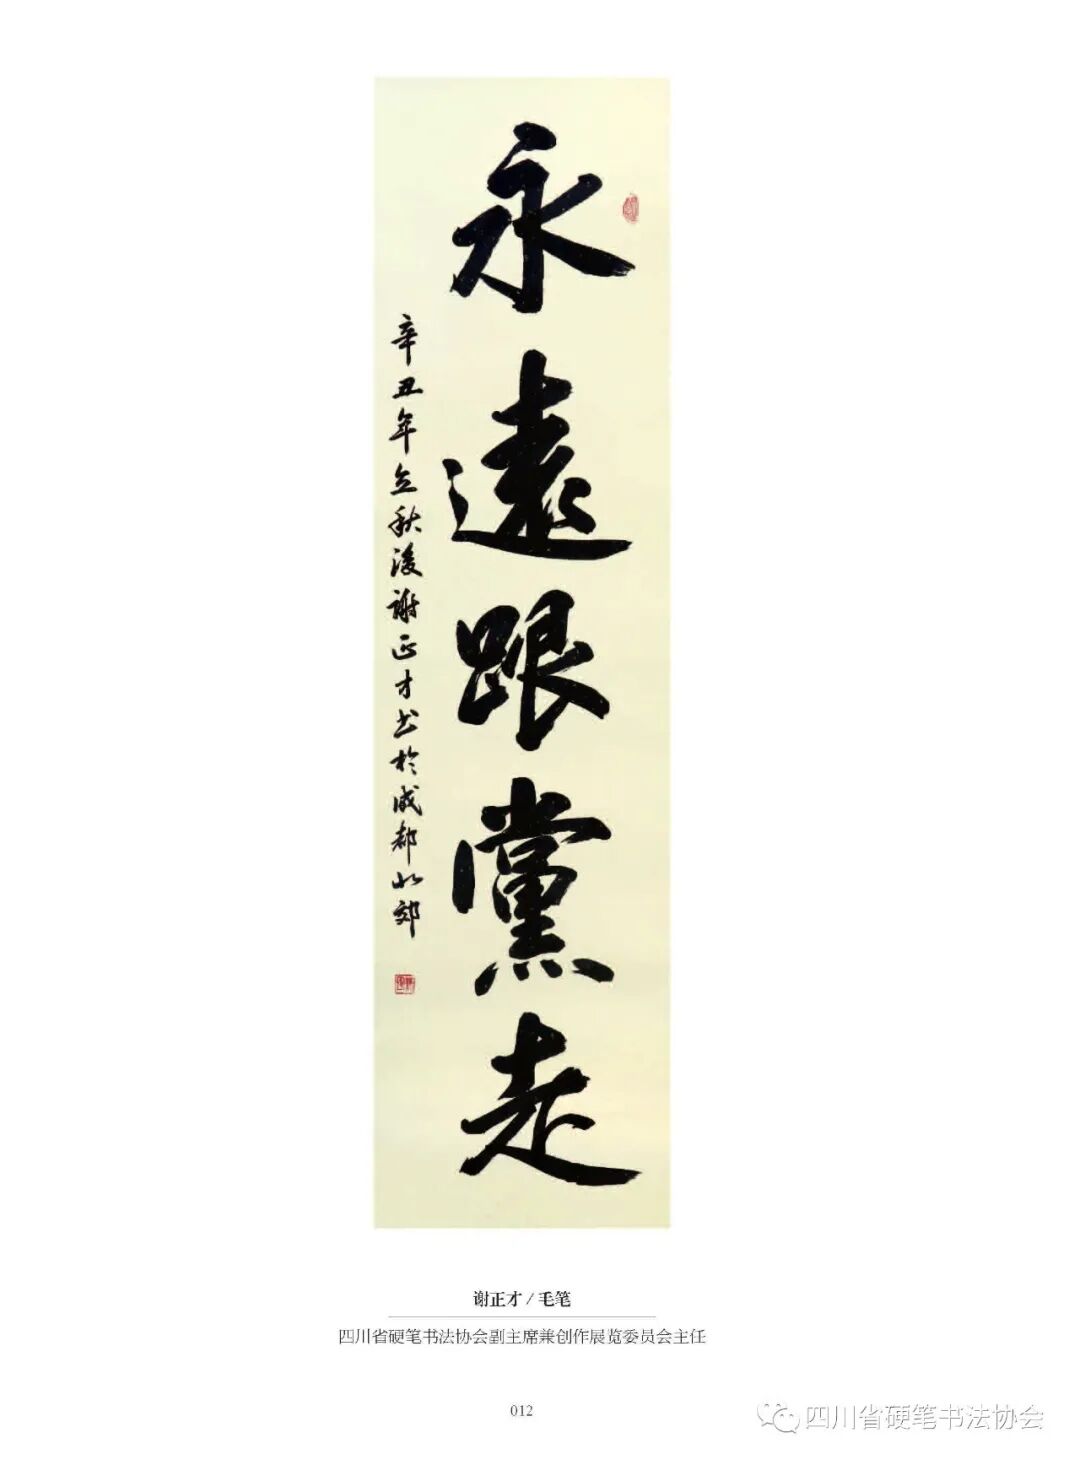 永遠跟黨走
辛丑年立秋後謝正才书於成都北郊
谢正才 / 毛笔
四川省硬笔书法协会副主席兼创作展览委员会主任
012
四川省硬笔书法协会